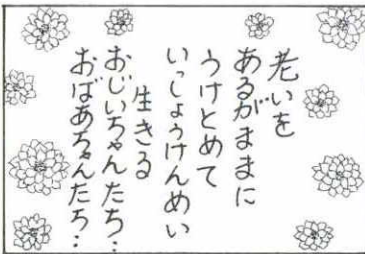 老いを
あるがままに
うけとめて
いっしょうけんめい
生きる
おじいちゃんたち…
おばあちゃんたち…